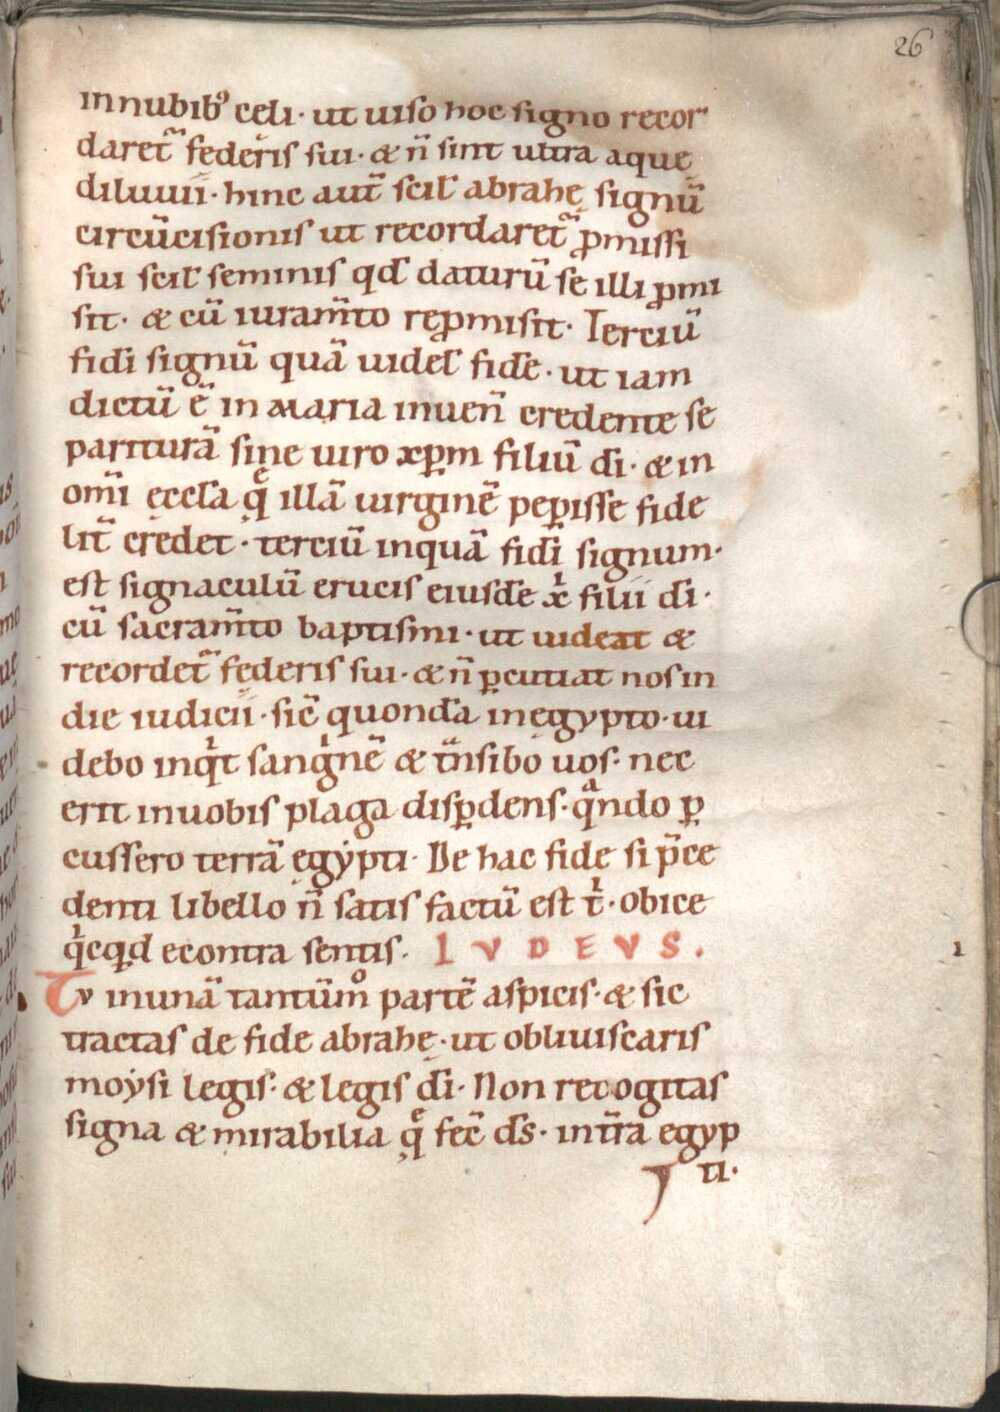 26
innubib⁹ celi · ut uiso hoc signo recor
daret᷑ federis sui · & n̄ sint ultra aque
diluuii · hinc aut̄ scil' abrahę signū
circūcisionis ut recordaret᷑ ꝓmissi
sui scil' seminis qd̄ daturū se illi ꝓmi
sit · & cū iuram̄to reꝓmisit · Terciū
fidi signū quā uidel' fidē · ut iam
dictū ē in maria inuen̄ credente se
parituram̄ sine uiro xp̄m filiū dī · & in
om̄i ęccl̄a q̨ illā uirginē peꝑisse fide
lit̄ credet · terciū inquā fidī signum ·
est signaculū crucis eiusdē xͥ filii dī ·
cū sacram̄to baptismi · ut uideat &
recordet᷑ fęderis sui · & n̄ ꝑcutiat nos in
die iudicii · sic̄ quondā inęgypto · ui
debo inqͥt sangͥnē & tn̄sibo uos · nec
erit inuobis plaga disꝑdens · qᷓndo ꝑ
cussero terrā ęgẏpti · De hac fidę si p̄ce
denti libello n̄ satis factū est tͥ · obice
qͥcqd econtra sentis · IVDEVS .
Tv inunā tantūm̊ partē aspicis · & sic
tractas de fide abrahę · ut obliuiscaris
moẏsi legis · & legis dī · Non recogitas
signa & mirabilia q̨ fec̄ ds̄ · intr̄a egyp
ti ·